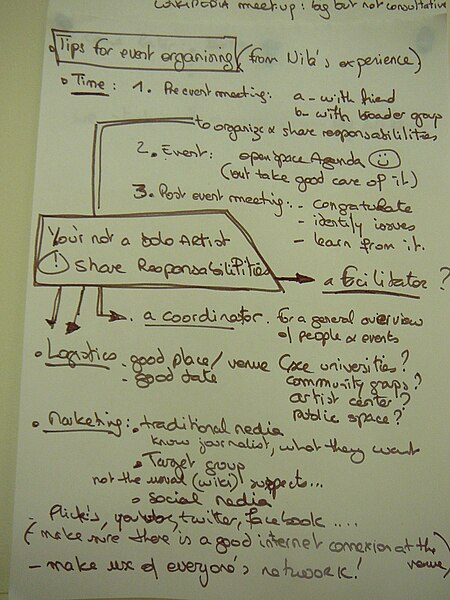 WIKIPEDIA meetup: big but not consultative
• Tips for event organising (from Nile's experience)
• Time: 1. Pre event meeting: a - with friend
b - with broader group
to organize & share responsabililities
2. Event: open space Agenda
(but take good care of it)
3. Post event meeting: - congratulate
- identify issues
- learn from it.
You're not a solo Artist
! Share Responsabilitities
a facilitator ?
• a coordinator. for a general overview
of people & events
• Logistics . good place / venue (see universities?
. good date
community groups?
artist center?
public space?
• Marketing: • traditional media
know journalist, what they want
• Target group
not the usual (wiki) suspects...
• social media
- Flickr, youtube, twitter, facebook ....
(make sure there is a good internet connexion at the venue)
- make use of everyone's network!